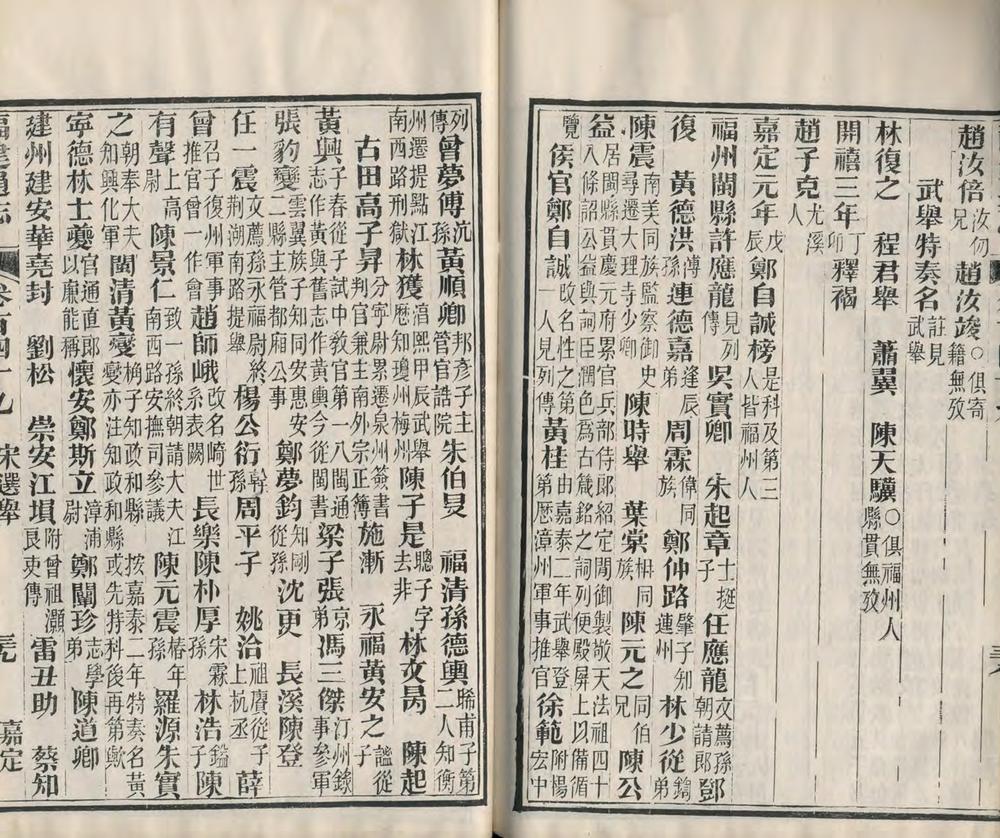 趙汝倍汝勿兄 趙汝㕙○俱寄籍無攷
武舉特奏名註見武舉
林復之 程君舉 蕭翼 陳天驥○俱福州人縣貫無攷
開禧三年丁卯釋褐
趙子克尤溪人
嘉定元年戊辰鄭自誠榜是科及第三人皆福州人
福州閩縣許應龍見列傳 吳實卿 朱起章挺士子 任應龍文薦孫朝請郎 鄧
復 黃德洪傳孫 連德嘉逢辰 周霖偉同族 鄭仲路肇子知連州 林少從鎬弟
陳震南美同族監察御史尋遷大理寺少卿 陳時舉 葉棠枏同族 陳元之同伯兄 陳公
益居閩縣貫慶元府累官兵部侍郎紹定閒御製敬天法祖四十八條詔公益與詞臣潤色爲古箴銘之詞列便殿屏上以備循
覽 侯官鄭自誠改名性之第一人見列傳 黃桂由嘉泰二年武舉登第歷漳州軍事推官 徐範附楊宏中
列傳 曾夢傅沆孫 黃順卿邦彥子主管官誥院 朱伯旻 福清孫德輿晞甫子第二人知衡
州遷提點江南西路刑獄 林獲淳熙甲辰武舉歷知瓊州梅州 陳子是聰子字去非 林文昺 陳起
古田高子昇分寧尉累遷泉州簽書判官兼主南外宗正簿 施漸 永福黃安之謐從子
黃興子春從子試中教官第一八閩通志作黃與舊志作黃輿今從閩書 梁子張京弟 馮三傑汀州錄事參軍
張豹變雲翼族子知同安惠安二縣主管都廂公事 鄭夢鈞知剛從孫 沈更 長溪陳登
任一震文薦孫永福尉終荊湖南路提舉 楊公衍幹孫 周平子 姚洽祖賡從子上杭丞 薛
曾召子復州軍事推官曾一作會 趙師峨改名崎世系表闕 長樂陳朴厚宋霖孫 林浩鎰子 陳
有聲上高尉 陳景仁致一孫終朝請大夫江南西路安撫司參議 陳元震椿年孫 羅源朱實
之朝奉大夫知興化軍 閩清黃變桷子知政和縣 按嘉泰二年特奏名黃變亦注知政和縣或先特科後再第歟
寧德林士䕫官通直郎以廉能稱 懷安鄭斯立漳浦尉 鄭闡珍學志弟 陳道卿
建州建安華堯封 劉松 崇安江塤附曾祖灝良吏傳 雷丑助 蔡知
福建通志 卷百四十九 宋選舉 嘉定